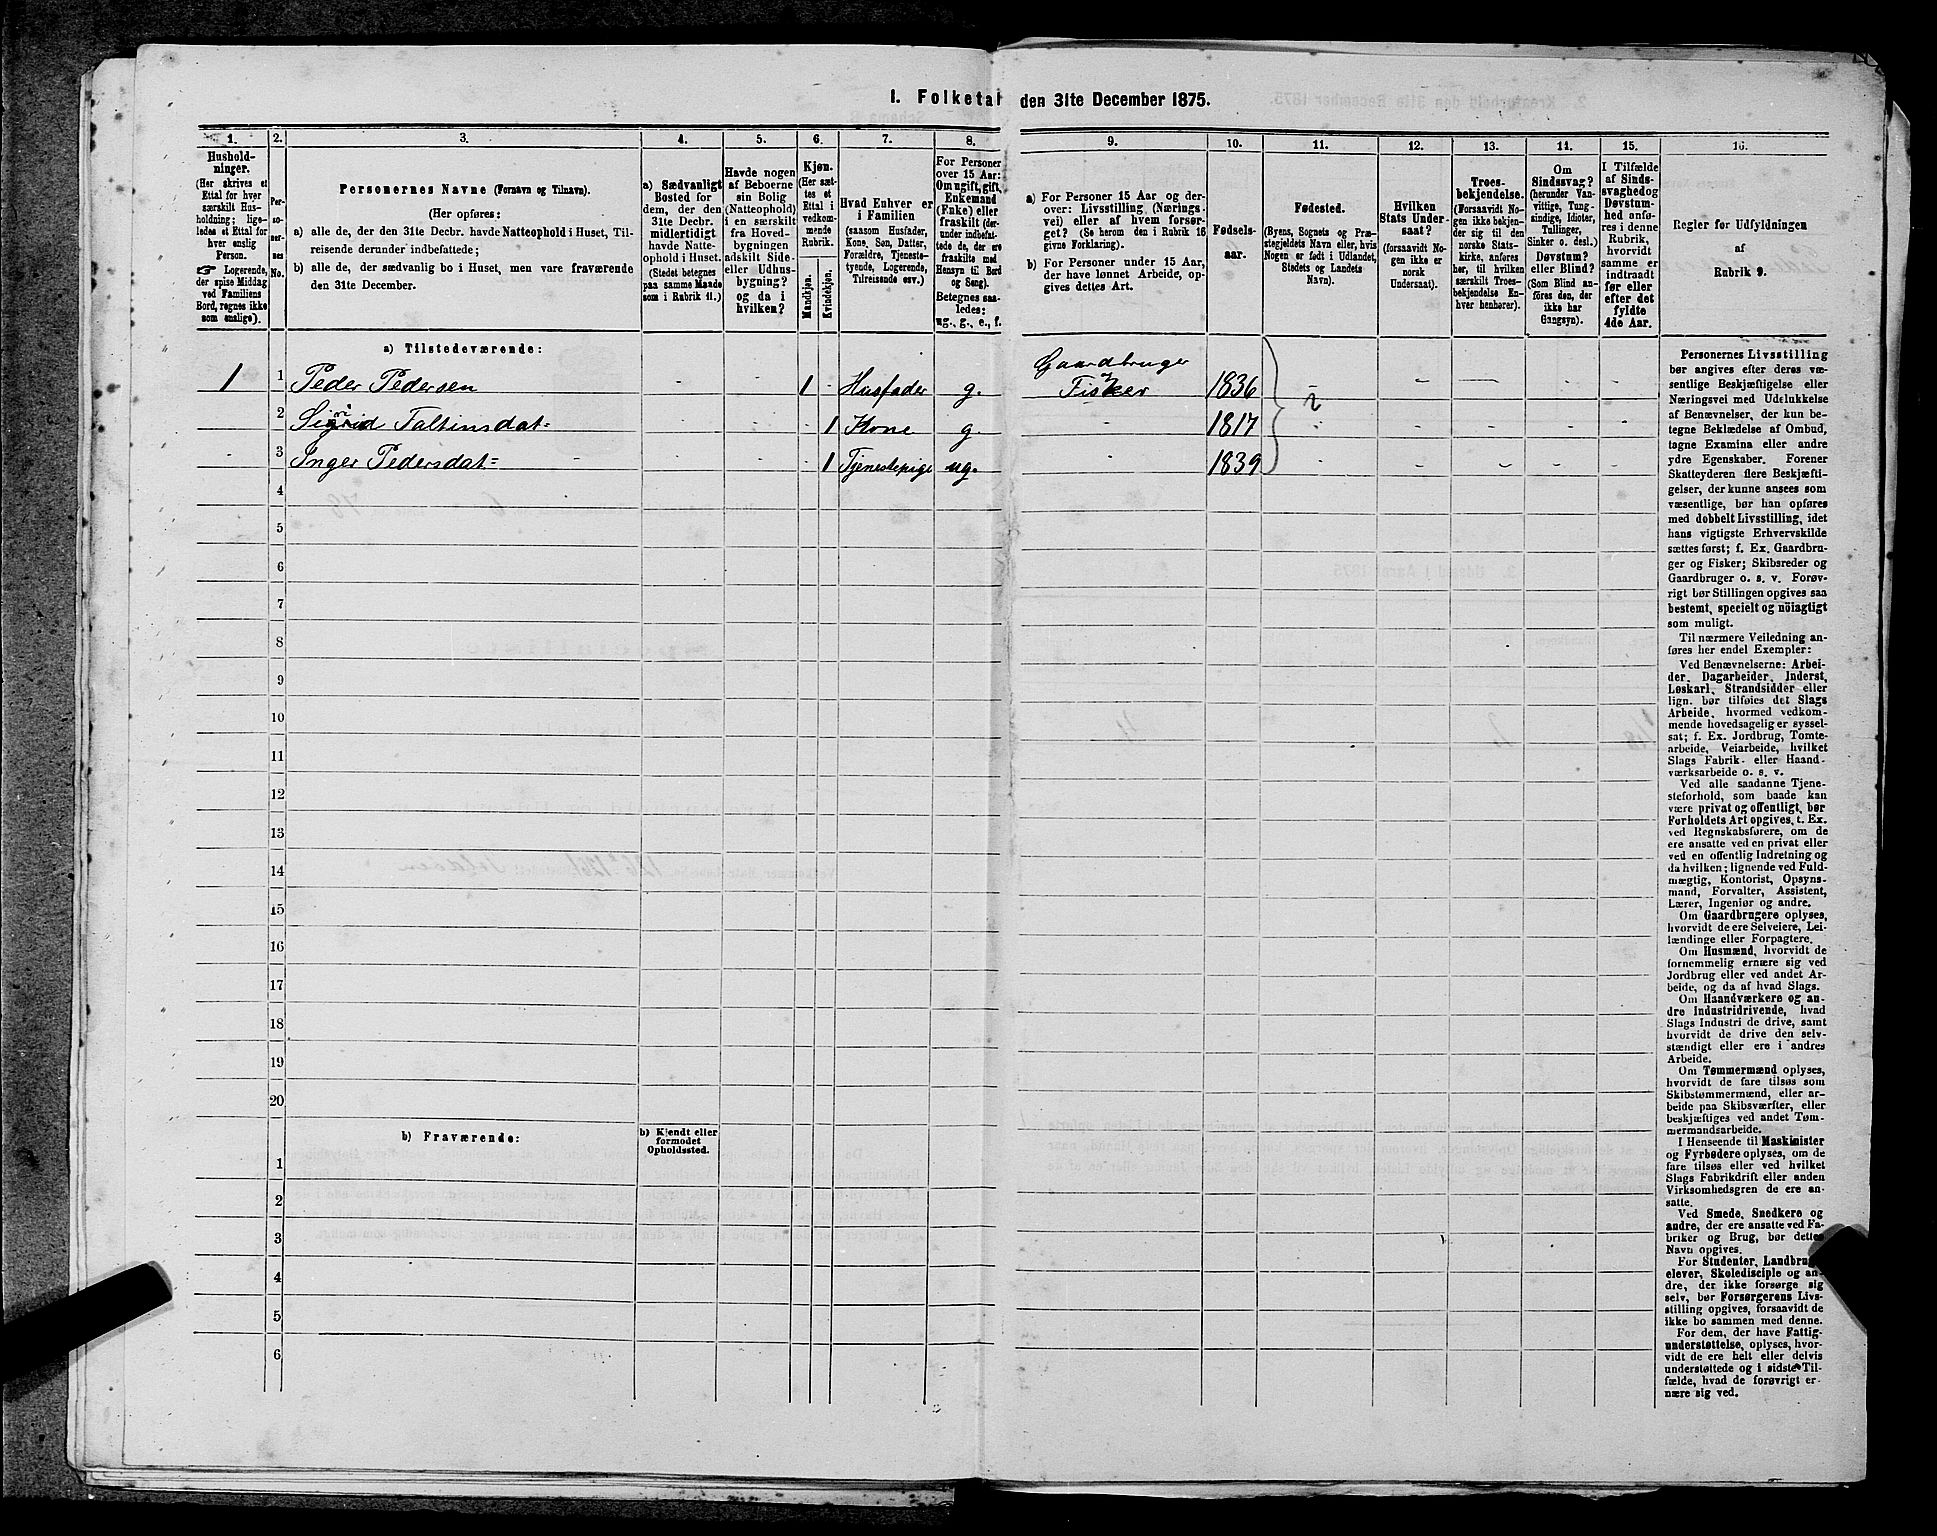 I. Folketal den 31te December 1875.
1. 2. 3. 4. 5. 6. 7. 8. 9. 10. 11. 12. 13. 14. 15. 16.
Hushold-
ninger.
(Her skrives et
Ettal for hver
særskilt Hus-
holdning; lige-
ledes et Ettal for
hver enslig
Person.
☞ Logerende,
der spise Middag
ved Familiens
Bord, regnes ikke
som enslige).
Per-
so-
ner-
nes
No.
Personernes Navne (Fornavn og Tilnavn).
(Her opføres:
a) alle de, der den 31te Decbr. havde Natteophold i Huset, Til-
reisende derunder indbefattede;
b) alle de, der sædvanlig bo i Huset, men vare fraværende
den 31te December.
a) Sædvanligt
Bosted for
dem, der den
31te Decbr.
midlertidigt
havde Natte-
ophold i Huset.
(Stedet betegnes
paa samme Maade
som i Rubrik 11.)
Havde nogen
af Beboerne
sin Bolig
(Natteophold)
i en særskilt
fra Hoved-
bygningen
adskilt Side-
eller Udhus-
bygning?
og da i
hvilken?
Kjøn.
(Her sæt-
tes et
Ettal i
vedkom-
mende
Rubrik.
Mandkjøn.
Kvindekjøn.
Hvad Enhver er
i Familien
(saasom Husfader,
Kone, Søn, Datter,
Forældre, Tjeneste-
tyende, Logerende,
Tilreisende osv.)
For Personer
over 15 Aar:
Om ugift, gift,
Enkemand
(Enke) eller
fraskilt (der-
under indbefat-
tede de, der ere
fraskilte med
Hensyn til Bord
og Seng).
Betegnes saa-
ledes:
ug., g., e., f.
a) For Personer 15 Aar og der-
over: Livsstilling (Nærings-
vei) eller af hvem forsør-
get? (Se herom den i Rubrik 16
givne Forklaring).
b) For Personer under 15 Aar,
der have lønnet Arbeide, op-
gives dettes Art.
Fødsels-
aar.
Fødested.
(Byens, Sognets og Præ-
stegjeldets Navn eller, hvis
Nogen er født i Udlandet,
Stedets og Landets
Navn).
Hvilken
Stats Under-
saat?
(forsaavidt No-
gen ikke er
norsk
Undersaat).
Troes-
bekjendelse.
(Forsaavidt No-
gen ikke bekjen-
der sig til den
norske Stats-
kirke, anføres
her, til hvilken
særskilt Troes-
bekjendelse En-
hver henhører).
Om
Sindssvag?
(herunder Van-
vittige, Tung-
sindige, Idioter,
Tullinger,
Sinker o. desl.)
Døvstum?
eller Blind?
(Som Blind an-
føres den, der
ikke har
Gangsyn).
I Tilfælde
af Sinds-
svaghed og
Døvstum-
hed anfø-
res i denne
Rubrik,
hvorvidt
samme er
indtraadt
før eller
efter det
fyldte
4de Aar.
Regler for Udfyldningen
af
Rubrik 9.
a) Tilstedeværende:
1 1 Peder Pedersen - - 1 - Husfader g. Gaardbruger
Fisker 1836 - - - - -
2 Sigrid Taltinsdat= - - - 1 Kone g. - 1817 - - - - -
3 Inger Pedersdat= - - - 1 Tjenestepige ug. - 1839 - - - - -
4
5
6
7
8
9
10
11
12
13
14
15
16
17
18
19
20
b) Fraværende:
b) Kjendt eller
formodet
Opholdssted.
1
2
3
4
5
6
Personernes Livsstilling
bør angives efter deres væ-
sentlige Beskjæftigelse eller
Næringsvei med Udelukkelse
af Benævnelser, der kun be-
tegne Beklædelse af Ombud,
tagne Examina eller andre
ydre Egenskaber. Forener
Skatteyderen flere Beskjæfti-
gelser, der kunne ansees som
væsentlige, bør han opføres
med dobbelt Livsstilling, idet
hans vigtigste Erhvervskilde
sættes først; f. Ex. Gaardbru-
ger og Fisker; Skibsreder og
Gaardbruger o. s. v. Forøv-
rigt bør Stillingen opgives saa
bestemt, specielt og nöiagtigt
som muligt.
Til nærmere Veiledning an-
føres her endel Exempler:
Ved Benævnelserne: Arbei-
der, Dagarbeider, Inderst,
Løskarl, Strandsidder eller
lign. bør tilføies det Slags
Arbeide, hvormed vedkom-
mende hovedsagelig er syssel-
sat; f. Ex. Jordbrug, Tomte-
arbeide, Veiarbeide, hvilket
Slags Fabrik- eller Haand-
værksarbeide o. s. v.
Ved alle saadanne Tjene-
steforhold, som baade kan
være privat og offentligt, bør
Forholdets Art opgives, t. Ex.
ved Regnskabsførere, om de
ere ansatte ved en privat eller
ved en offentlig Indretning og
da hvilken; lignende ved Fuld-
mægtig, Kontorist, Opsyns-
mand, Forvalter, Assistent,
Lærer, Ingeniør og andre.
Om Gaardbrugere oplyses,
hvorvidt de ere Selveiere, Lei-
lændinge eller Forpagtere.
Om Husmænd, hvorvidt de
fornemmelig ernære sig ved
Jordbrug eller ved andet Ar-
beide, og da af hvad Slags.
Om Haandværkere og an-
dre Industridrivende, hvad
Slags Industri de drive, samt
hvorvidt de drive den selv-
stændigt eller ere i andres
Arbeide.
Om Tømmermænd oplyses,
hvorvidt de fare tilsøs som
Skibstømmermænd, eller ar-
beide paa Skibsværfter, eller
beskjæftiges ved andet Tøm-
mermandsarbeide.
I Henseende til Maskinister
og Fyrbødere oplyses, om de
fare tilsøs eller ved hvilket
Slags Fabrikdrift eller anden
Virksomhedsgren de ere an-
satte.
Ved Smede, Snedkere og
andre, der ere ansatte ved Fa-
briker og Brug, bør dettes
Navn opgives.
For Studenter, Landbrugs-
elever, Skoledisciple og an-
dre, der ikke forsørge sig
selv, bør Forsørgerens Livs-
stilling opgives, forsaavidt de
ikke bo sammen med denne.
For dem, der have Fattig-
understøttelse, oplyses, hvor-
vidt de ere helt eller delvis
understøttede og i sidste Til-
fælde, hvad de forøvrigt er-
nære sig ved.